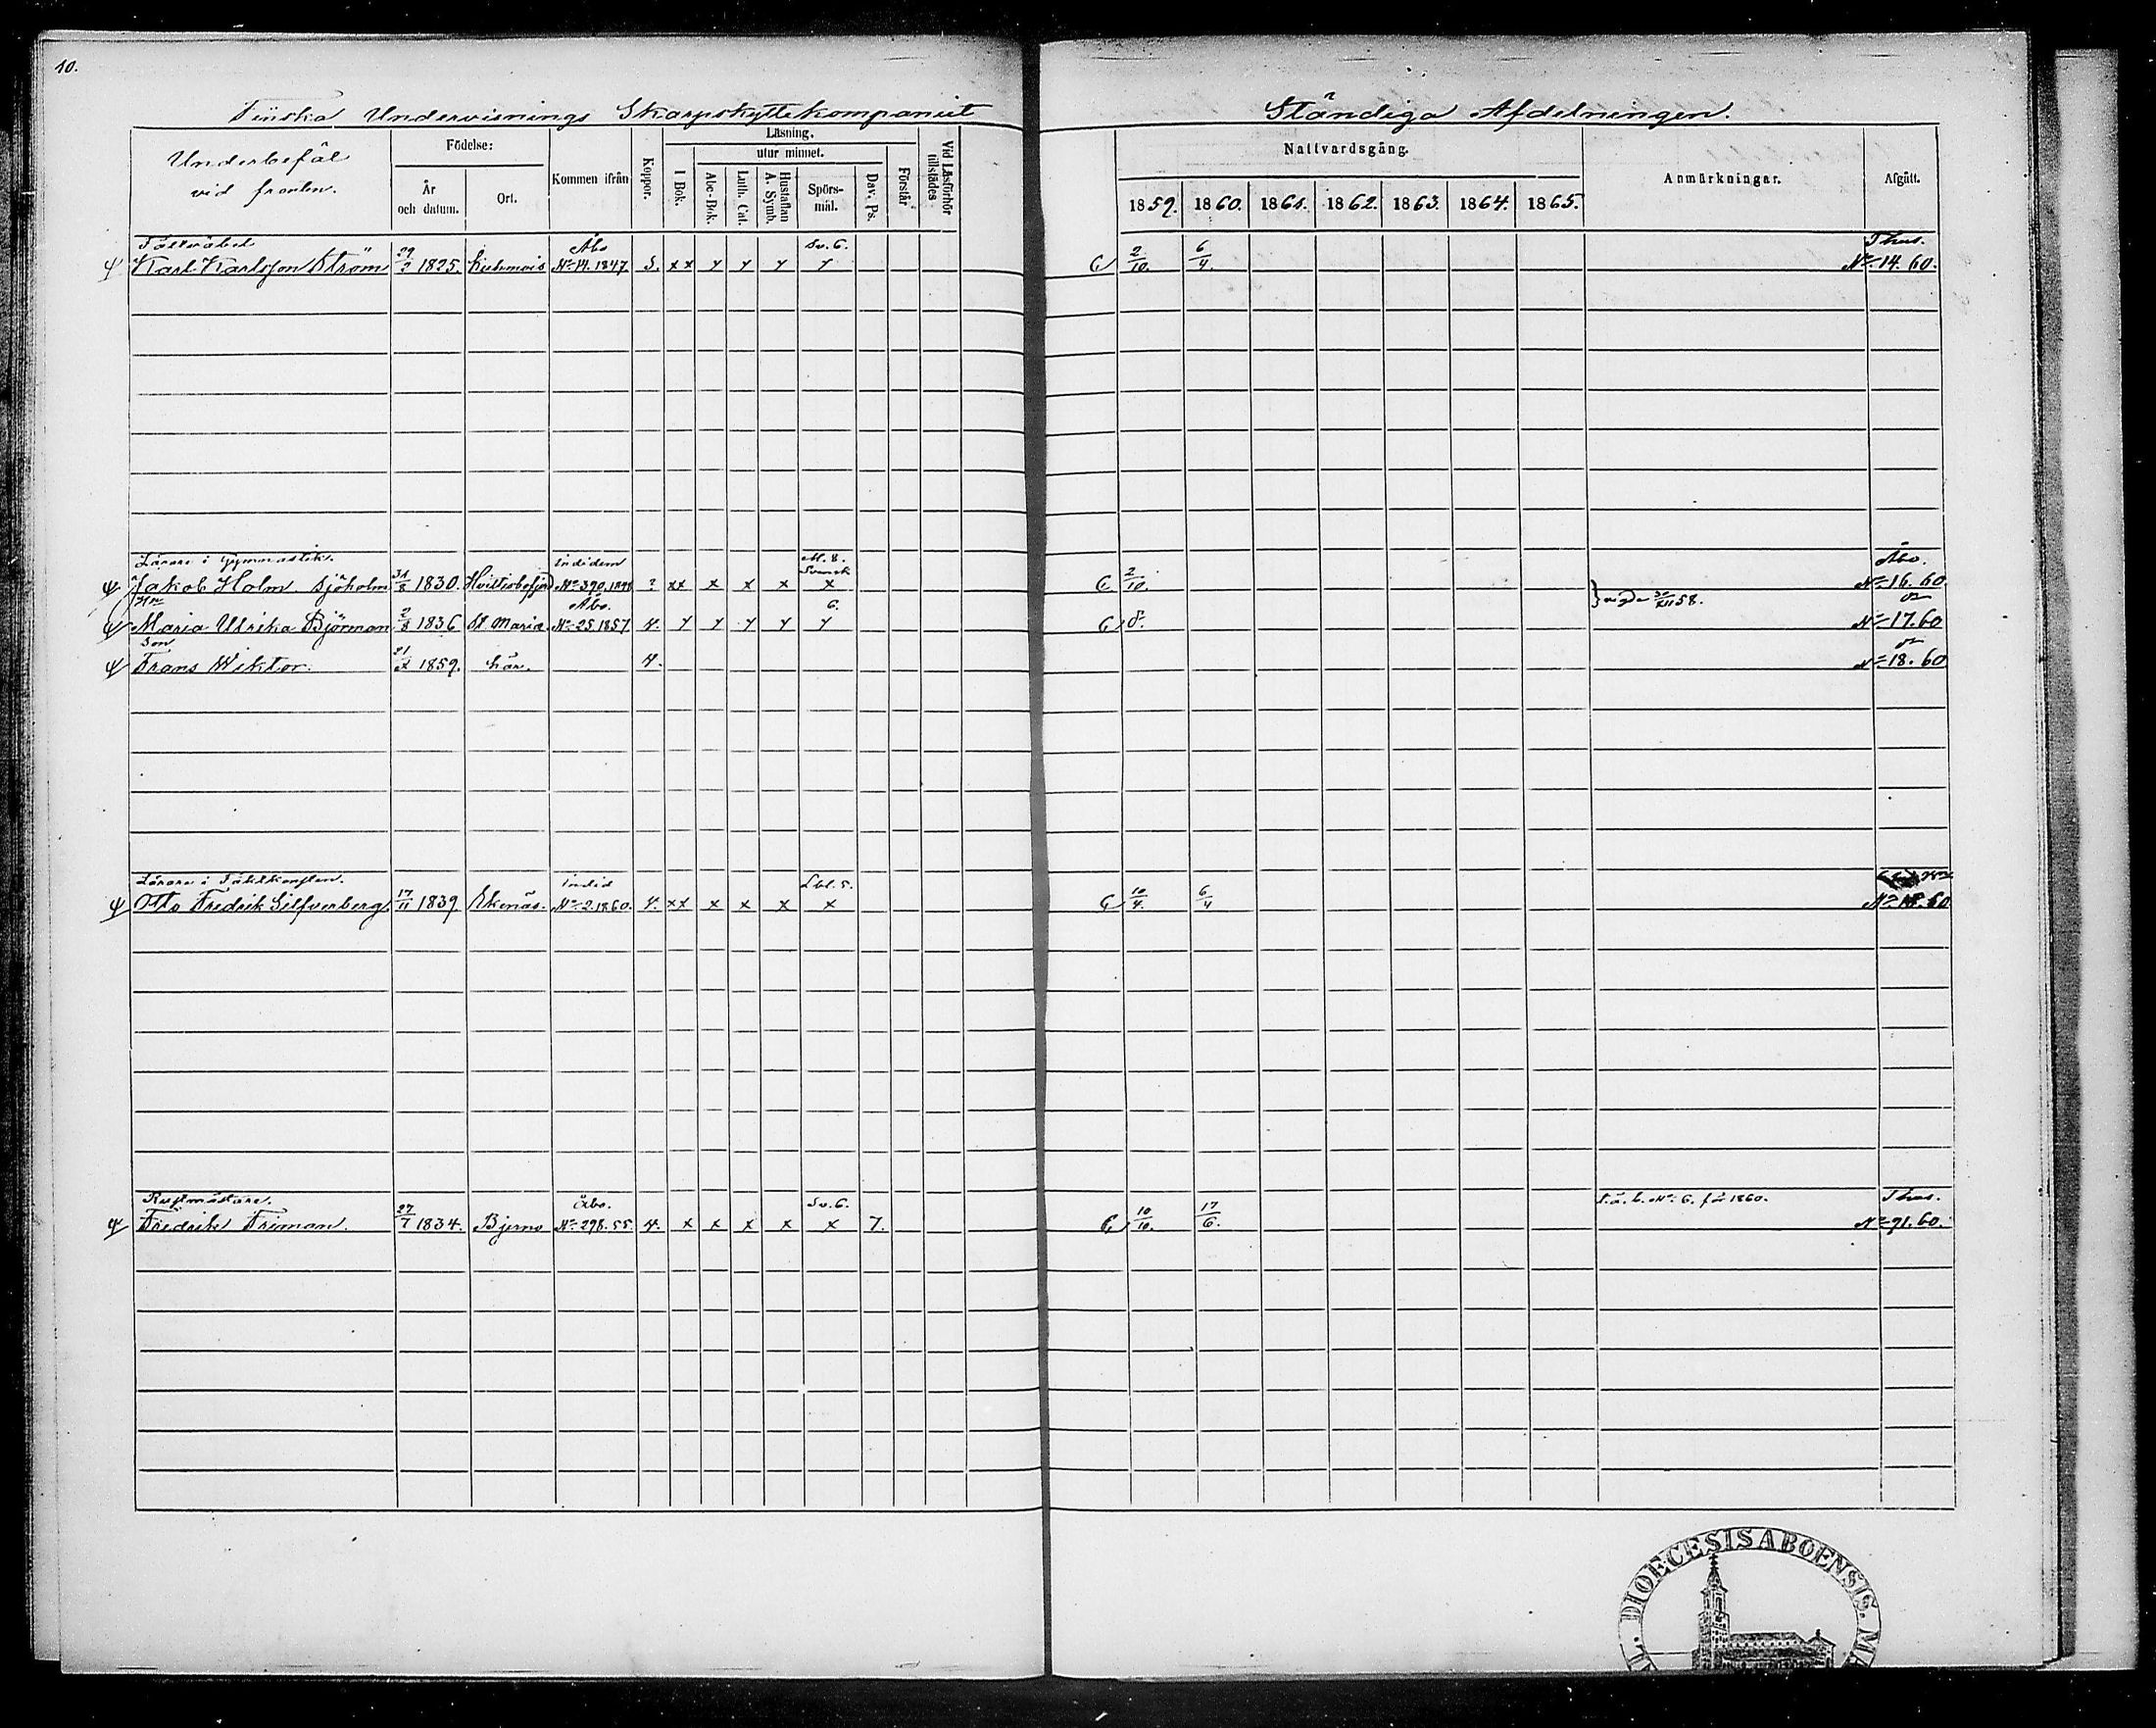 10.
Finska Undervisnings Skarpskyttekompaniet Ständiga Afdelningen.
Underbefäl vid fronten.
Födelse:
År och datum.
Ort.
Kommen ifrån
Koppor.
Läsning.
I Bok.
utur minnet.
Abc-Bok.
Luth. Cat.
Hustaflan A. Symb.
Spörs-mål.
Dav. Ps.
Förstår
Vid Läsförhör tillstädes
Nattvardsgång.
1859. 1860. 1861. 1862. 1863. 1864. 1865.
Anmärkningar.
Afgått.
Fältväbel Åbo Sv. 6. Thus.
Karl Karlsson Ström 1825. Kuhmois No 14. 1847. S. x x y y y y 2/10. 6/4. No 14. 60.
Lärare i Gymnastik. indidem Svensk Åbo.
Jakob Holm Sjöholm 31/8 1830. No 390. ? xx x x x x 2/10. No 16. 60
Hu Åbo. 6. 58.
Maria Ulrika Björman 2/8 1836 St Marie. No 25. 1857. 4. y y y y y 8. No 17. 60
Son
Frans Wiktor. 1859. här. 4. No 18. 60
Lärare i Fäktkonsten. indid Lbl. 5.
Otto Fredrik Silfverberg. 17/11 1839 Ekenäs. No 2. 1860. 4. xx x x x x 10/4. 6/4
Rustmästare. Åbo. Sv. 6. S. ä. b. No 6. för 1860. Thus.
Fredrik Friman. 27/7 1834. Bjerno No 298. 55. 4. x x x x x 7. 10/10. 17/6. No 91. 60.
DIOECESIS ABOENSIS.